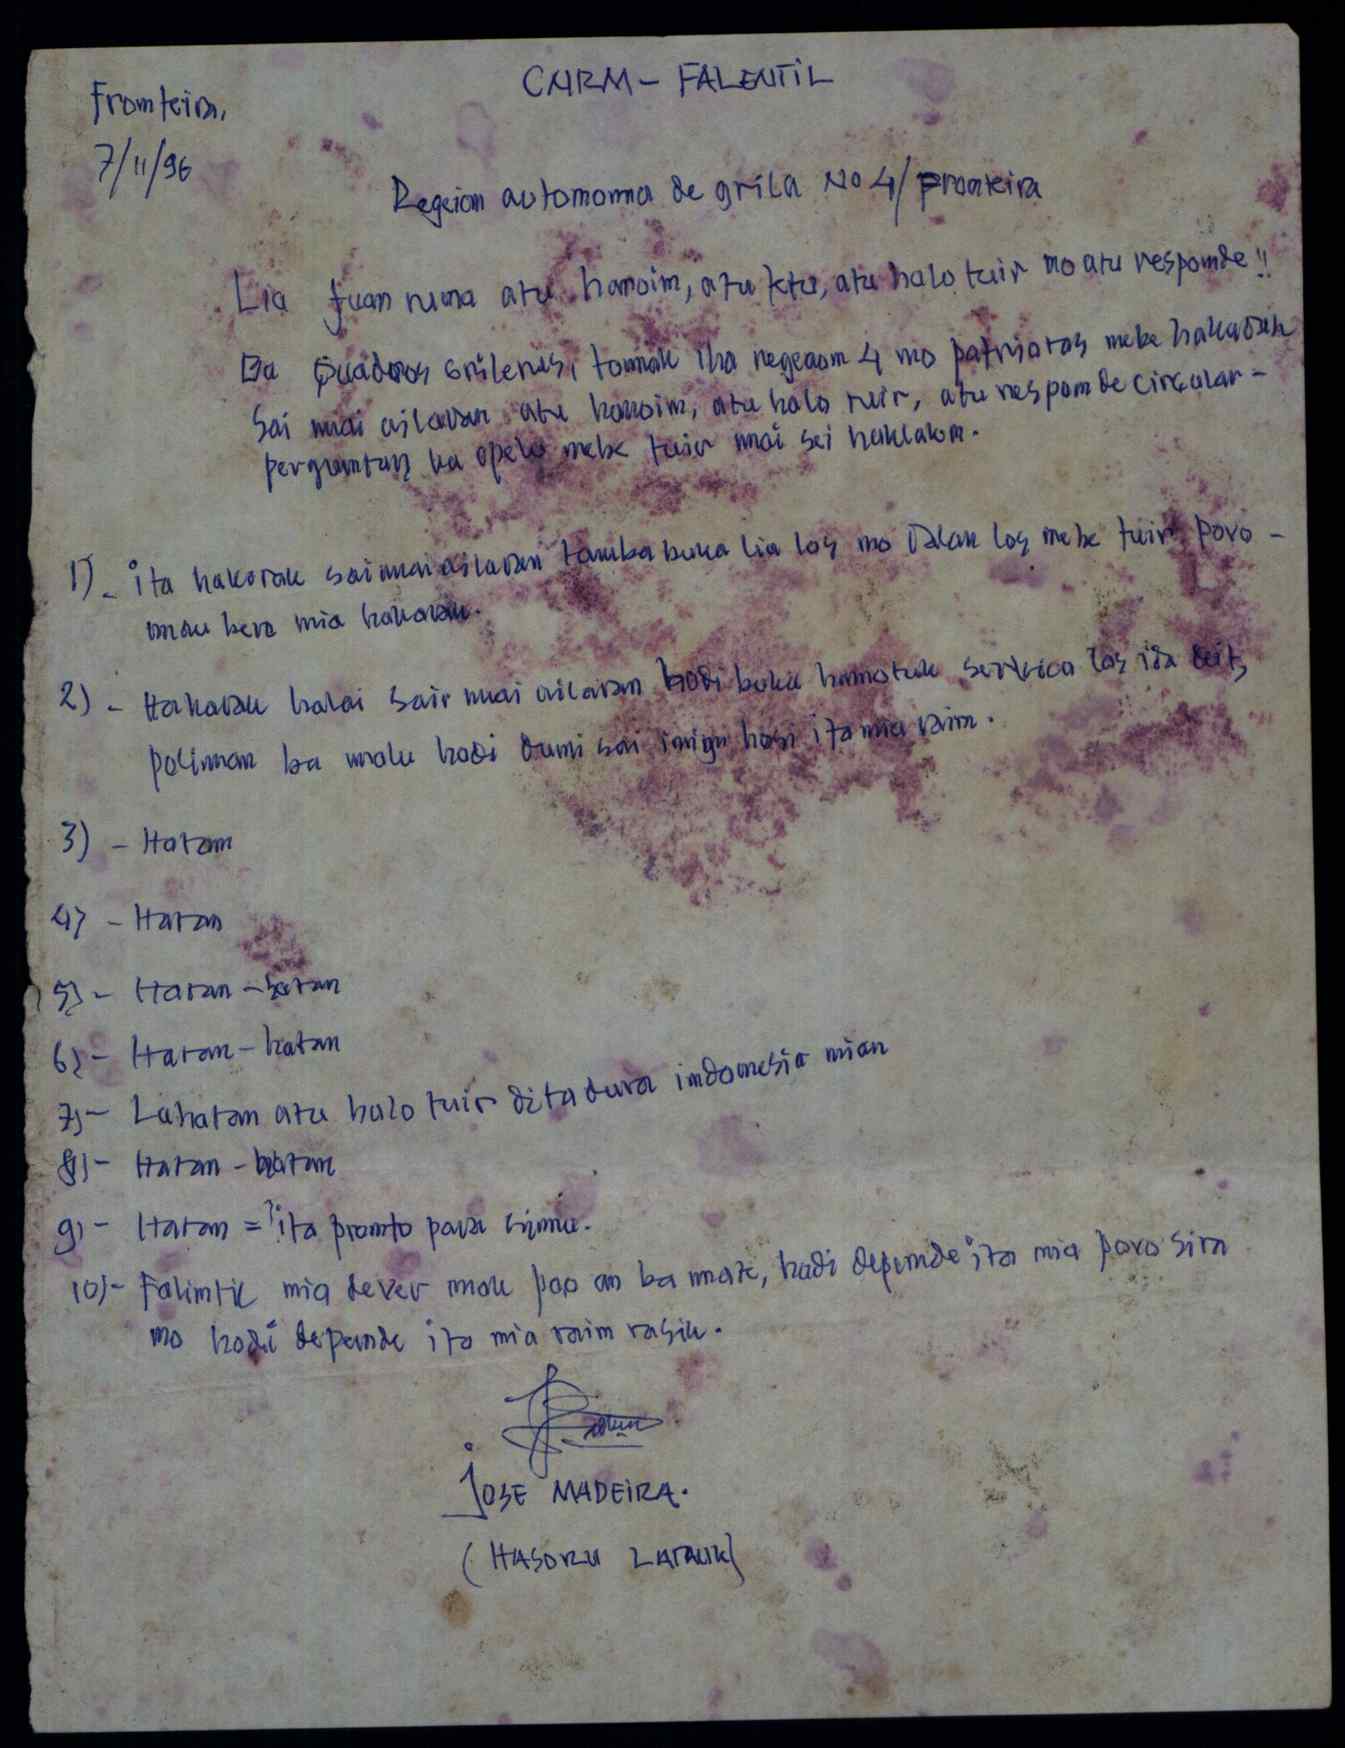 CNRM - FALENTIL
Fromteira,
7/11/96
Regeiom automoma de grila No 4/ Fronteira
Lia fuan ruma atu hanoim, atu tetu, atu halo tuir no atu responde !!
Ba Quadros Grilerus, tomak iha regeaom 4 mo patriotas mebe hakarak
sai mai ailaran atu hanoim, atu halo tuir, atu responde circular -
perguntas ka opelo mebe tuir mai sei haklakom.
1) - ita hakarak sai mai ailaran tamba buka lia los mo dalan los mebe tuir povo -
mau bere mia hakarak.
2) - Hakarak halai sair mai ailaran hodi buka hamotuk servico los ida deit,
poliman ba malu hodi dumi sai inigu hosi ita mia raim.
3) - Hatam
4) - Hatan
5) - Hatan - hatan
6) - Hatan - hatan
7) - Lahatan atu halo tuir ditadura indomesia mian
8) - Hatan - hatan
9) - Hatam = ita promto para simu.
10) - Falimtil mia dever mak poo an ba mate, hodi depemde ita mia povo sira
mo hodi depemde ita mia raim rasik.
JOSE MADEIRA.
(HASORU LATAUK)